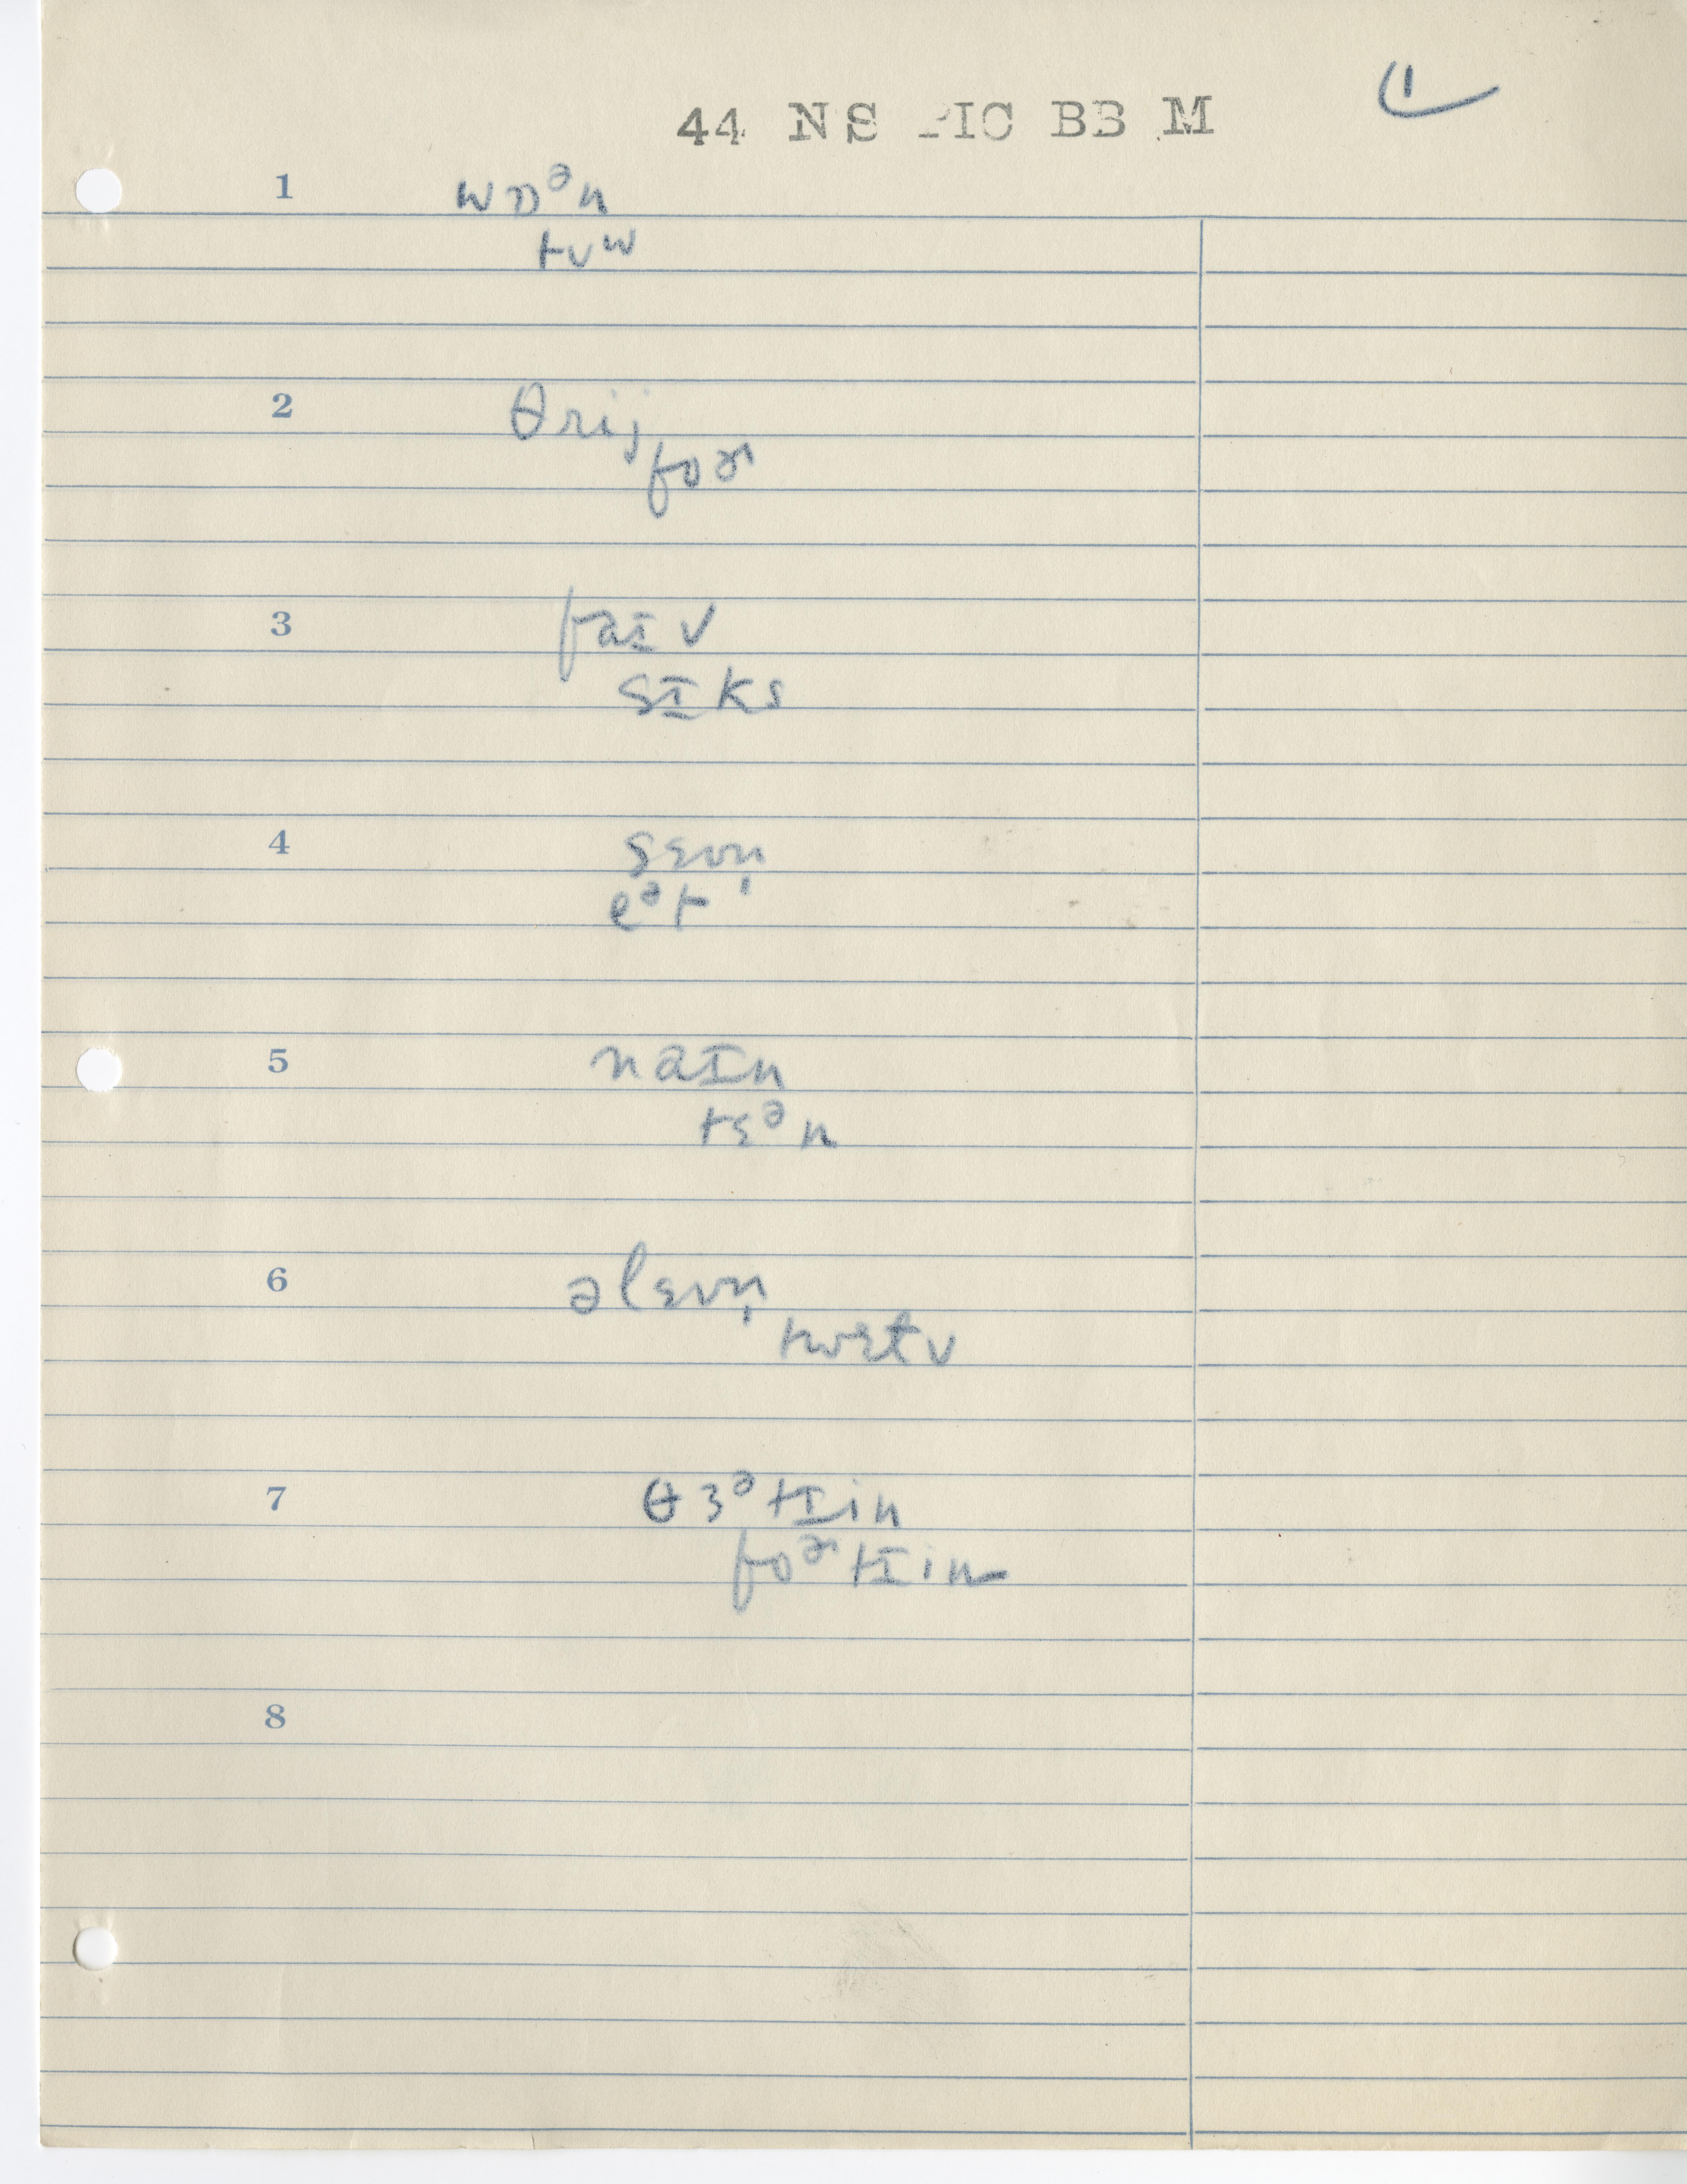 44 NS PIC BB M
1
1 wɒᵊn
tʊʷ
2 θrij
foɚ
3 faɪv
sɪks
4 sɛvn̩
eᵊt
5 naɪn
tɛᵊn
6 əlɛvn̩
twɛtv
7 θɜᵊtɪin
foɚtɪin
8